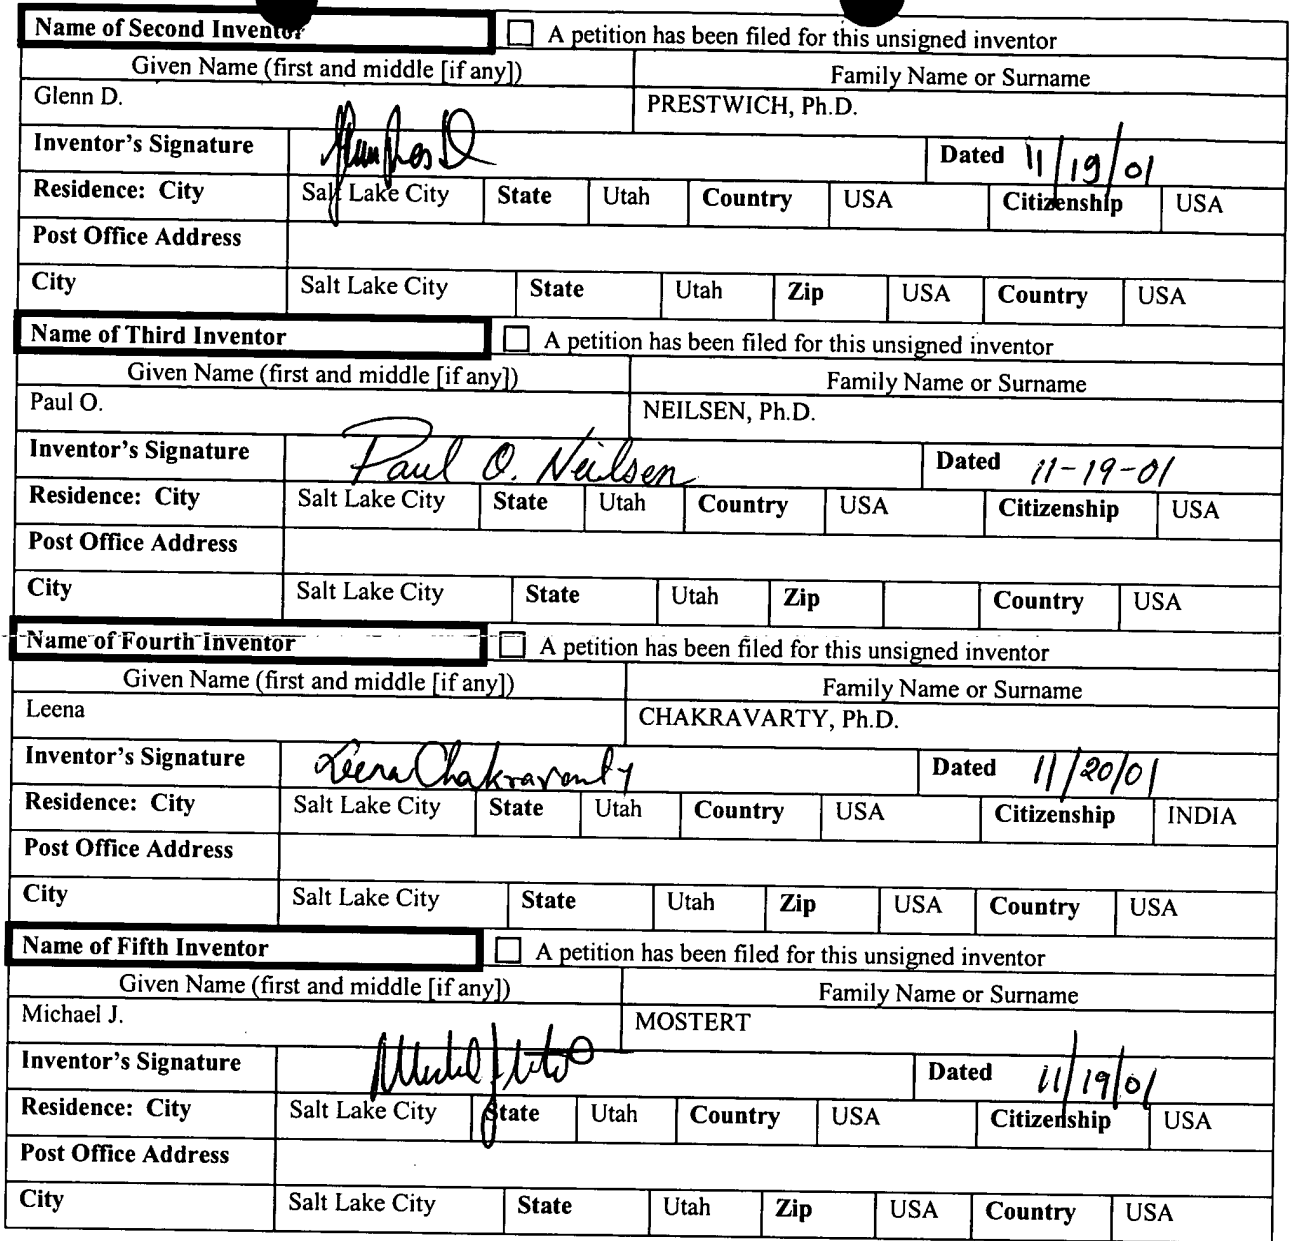 Name of Second Inventor ☐ A petition has been filed for this unsigned inventor
Given Name (first and middle [if any]) Family Name or Surname
Glenn D. PRESTWICH, Ph.D.
Inventor's Signature Dated 11/19/01
Residence: City Salt Lake City State Utah Country USA Citizenship USA
Post Office Address
City Salt Lake City State Utah Zip USA Country USA
Name of Third Inventor ☐ A petition has been filed for this unsigned inventor
Given Name (first and middle [if any]) Family Name or Surname
Paul O. NEILSEN, Ph.D.
Inventor's Signature Paul O. Neilsen Dated 11-19-01
Residence: City Salt Lake City State Utah Country USA Citizenship USA
Post Office Address
City Salt Lake City State Utah Zip Country USA
Name of Fourth Inventor ☐ A petition has been filed for this unsigned inventor
Given Name (first and middle [if any]) Family Name or Surname
Leena CHAKRAVARTY, Ph.D.
Inventor's Signature Leena Chakravarty Dated 11/20/01
Residence: City Salt Lake City State Utah Country USA Citizenship INDIA
Post Office Address
City Salt Lake City State Utah Zip USA Country USA
Name of Fifth Inventor ☐ A petition has been filed for this unsigned inventor
Given Name (first and middle [if any]) Family Name or Surname
Michael J. MOSTERT
Inventor's Signature Dated 11/19/01
Residence: City Salt Lake City State Utah Country USA Citizenship USA
Post Office Address
City Salt Lake City State Utah Zip USA Country USA